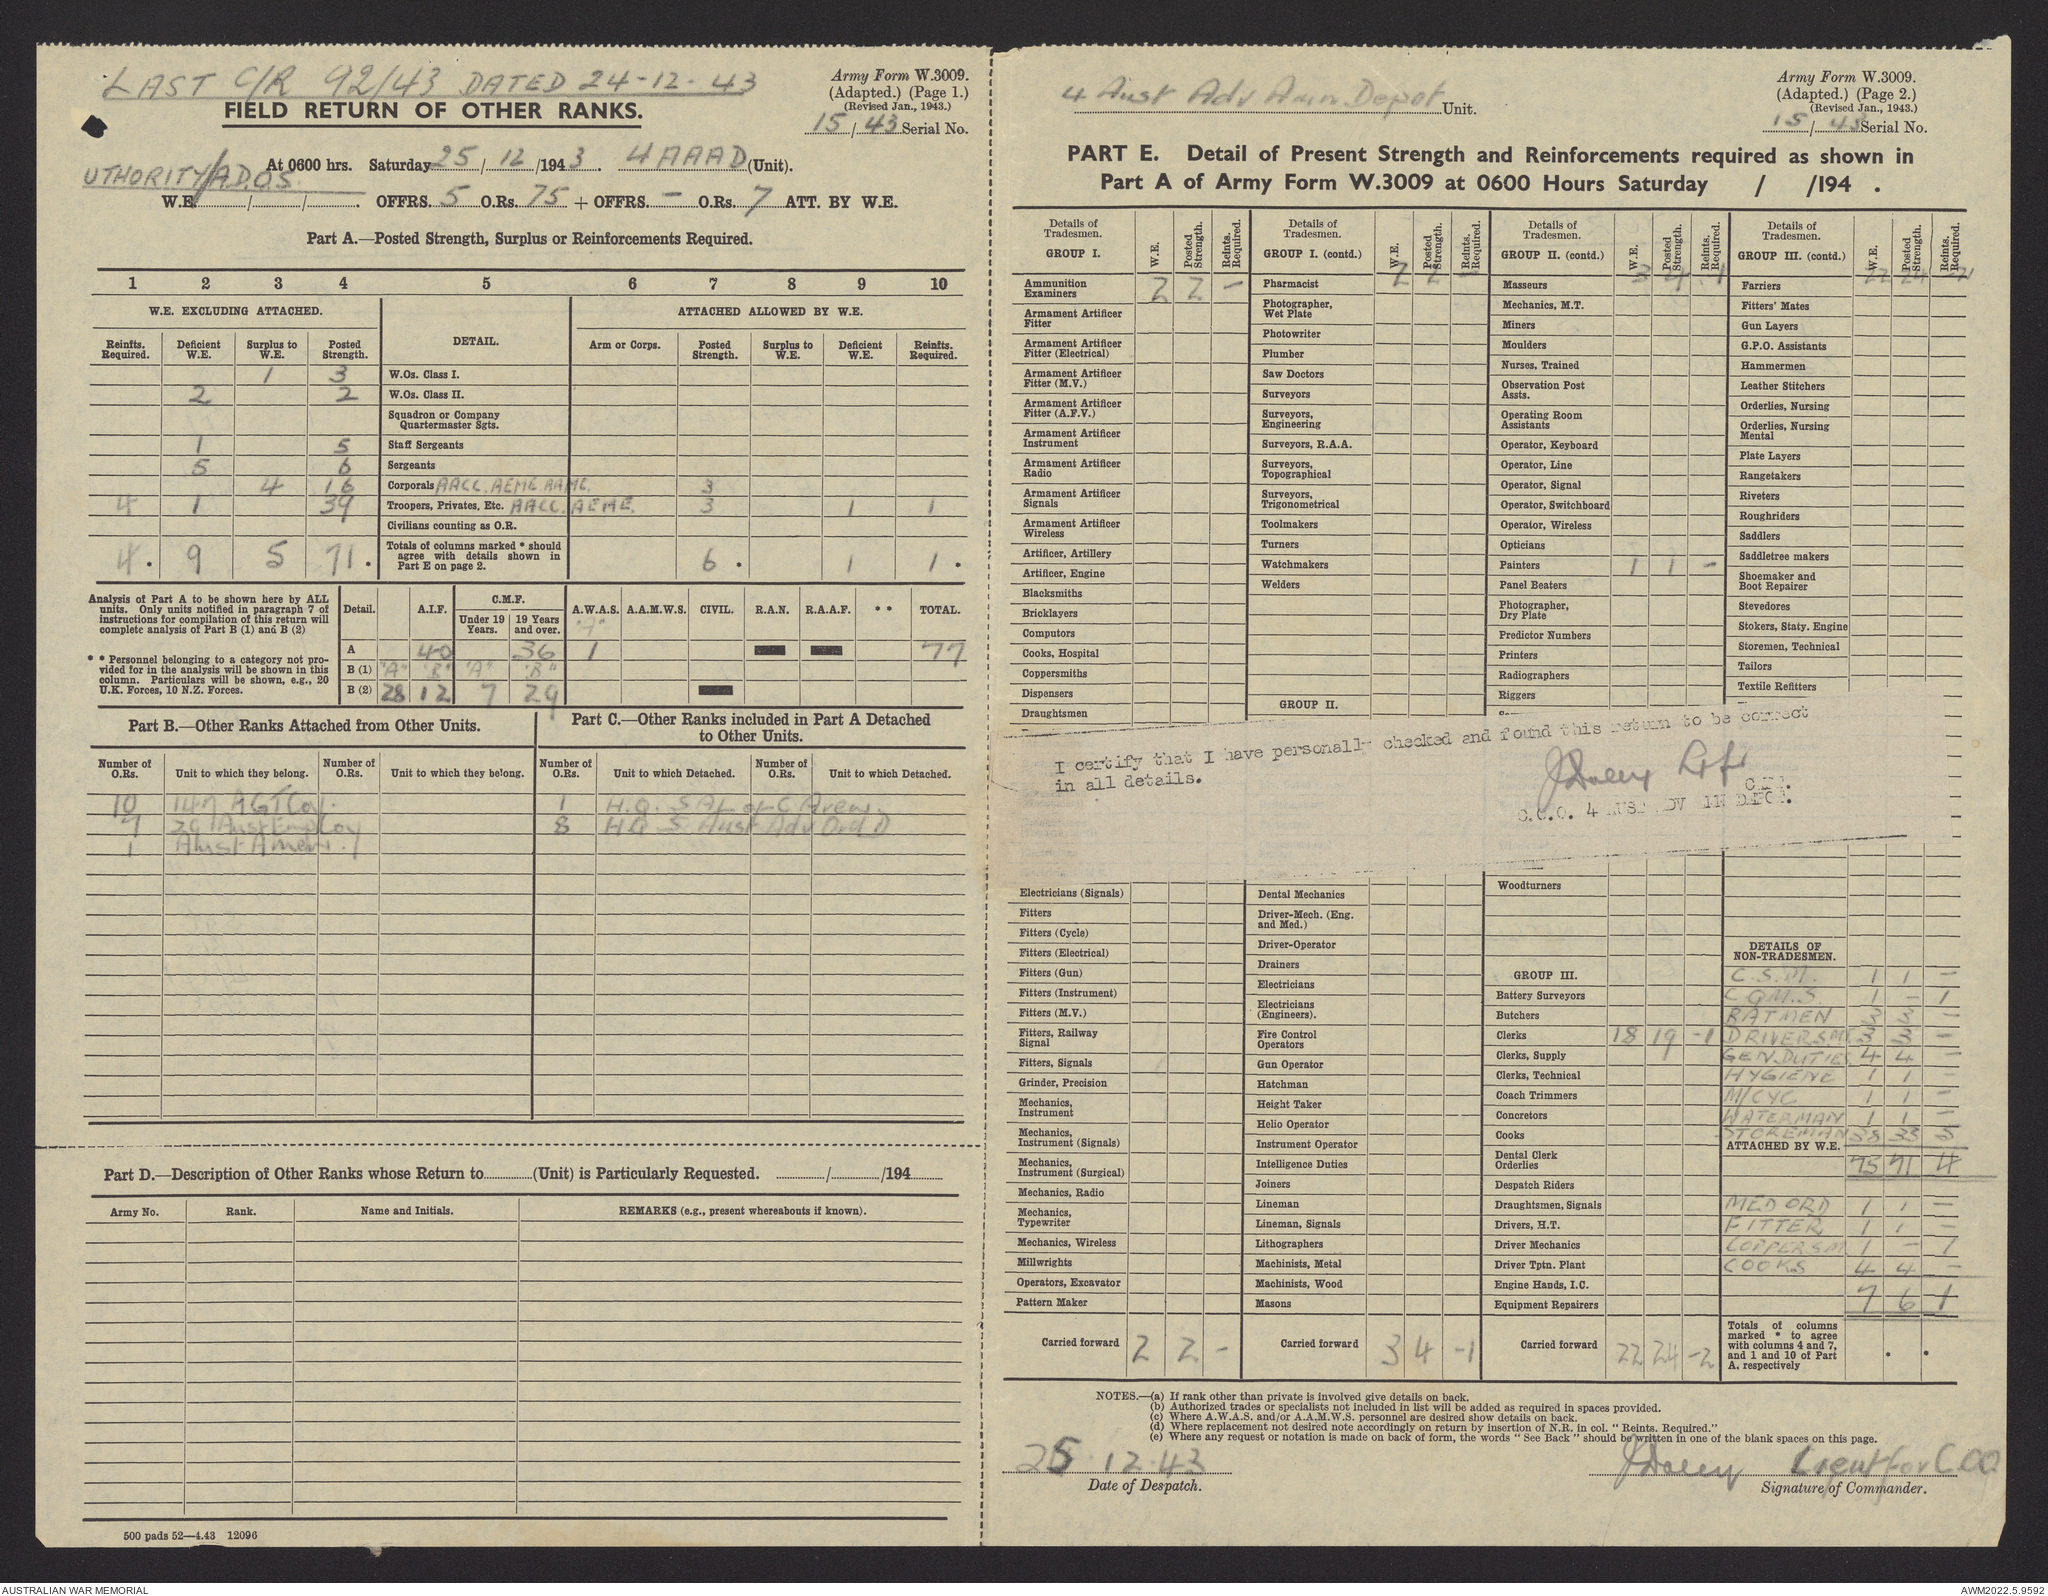 LAST C/R 92/43 DATED 24-12-43
FIELD RETURN OF OTHER RANKS.
Army Form W.3009.
(Adapted.) (Page 1.)
(Revised Jan., 1943.)
15 / 43 Serial No.
At 0600 hrs. Saturday 25 / 12 /1943. 4 AAAD (Unit).
UTHORITY/A.D.O.S.
W.E. / / . OFFRS. 5 O.Rs. 75 + OFFRS. — O.Rs. 7 ATT. BY W.E.
Part A.—Posted Strength, Surplus or Reinforcements Required.
1 2 3 4 5 6 7 8 9 10
W.E. EXCLUDING ATTACHED. DETAIL. ATTACHED ALLOWED BY W.E.
Reinfts. Required. Deficient W.E. Surplus to W.E. Posted Strength. Arm or Corps. Posted Strength. Surplus to W.E. Deficient W.E. Reinfts. Required.
1 3 W.Os. Class I.
2 2 W.Os. Class II.
Squadron or Company Quartermaster Sgts.
1 5 Staff Sergeants
5 6 Sergeants
4 16 Corporals AACC. AEME. RAME. 3
4 1 39 Troopers, Privates, Etc. AACC. AEME. 3 1 1
Civilians counting as O.R.
4 . 9 5 71 . Totals of columns marked * should agree with details shown in Part E on page 2. 6 . 1 1 .
Analysis of Part A to be shown here by ALL units. Only units notified in paragraph 7 of instructions for compilation of this return will complete analysis of Part B (1) and B (2)
* * Personnel belonging to a category not provided for in the analysis will be shown in this column. Particulars will be shown, e.g., 20 U.K. Forces, 10 N.Z. Forces.
Detail. A.I.F. C.M.F. Under 19 Years. 19 Years and over. A.W.A.S. A.A.M.W.S. CIVIL. R.A.N. R.A.A.F. * * TOTAL.
"A"
A 40 36 1 77
B (1) "A" "B" "A" "B"
B (2) 28 12 7 29
Part B.—Other Ranks Attached from Other Units.
Part C.—Other Ranks included in Part A Detached to Other Units.
Number of O.Rs. Unit to which they belong. Number of O.Rs. Unit to which they belong. Number of O.Rs. Unit to which Detached. Number of O.Rs. Unit to which Detached.
10 147 AGT Coy. 1 H.Q. S A L of C Area.
7 29 Aust Employ 8 HQ 5 Aust Adv Ord D
1 Aust Amen.
Part D.—Description of Other Ranks whose Return to (Unit) is Particularly Requested. / /194
Army No. Rank. Name and Initials. REMARKS (e.g., present whereabouts if known).
500 pads 52—4.43 12096
4 Aust Adv Amn Depot Unit.
Army Form W.3009.
(Adapted.) (Page 2.)
(Revised Jan., 1943.)
15 / 43 Serial No.
PART E. Detail of Present Strength and Reinforcements required as shown in
Part A of Army Form W.3009 at 0600 Hours Saturday / /194 .
Details of Tradesmen. GROUP I. W.E. Posted Strength. Reints. Required.
Ammunition Examiners 2 2 —
Armament Artificer Fitter
Armament Artificer Fitter (Electrical)
Armament Artificer Fitter (M.V.)
Armament Artificer Fitter (A.F.V.)
Armament Artificer Instrument
Armament Artificer Radio
Armament Artificer Signals
Armament Artificer Wireless
Artificer, Artillery
Artificer, Engine
Blacksmiths
Bricklayers
Computors
Cooks, Hospital
Coppersmiths
Dispensers
Draughtsmen
Electricians (Signals)
Fitters
Fitters (Cycle)
Fitters (Electrical)
Fitters (Gun)
Fitters (Instrument)
Fitters (M.V.)
Fitters, Railway Signal
Fitters, Signals
Grinder, Precision
Mechanics, Instrument
Mechanics, Instrument (Signals)
Mechanics, Instrument (Surgical)
Mechanics, Radio
Mechanics, Typewriter
Mechanics, Wireless
Millwrights
Operators, Excavator
Pattern Maker
Carried forward 2 2 -
Details of Tradesmen. GROUP I. (contd.) W.E. Posted Strength. Reints. Required.
2 2 -
Pharmacist
Photographer, Wet Plate
Photowriter
Plumber
Saw Doctors
Surveyors
Surveyors, Engineering
Surveyors, R.A.A.
Surveyors, Topographical
Surveyors, Trigonometrical
Toolmakers
Turners
Watchmakers
Welders
GROUP II.
Dental Mechanics
Driver-Mech. (Eng. and Med.)
Driver-Operator
Drainers
Electricians
Electricians (Engineers).
Fire Control Operators
Gun Operator
Hatchman
Height Taker
Helio Operator
Instrument Operator
Intelligence Duties
Joiners
Lineman
Lineman, Signals
Lithographers
Machinists, Metal
Machinists, Wood
Masons
Carried forward 3 4 -1
Details of Tradesmen. GROUP II. (contd.) W.E. Posted Strength. Reints. Required.
3 4 -1
Masseurs
Mechanics, M.T.
Miners
Moulders
Nurses, Trained
Observation Post Assts.
Operating Room Assistants
Operator, Keyboard
Operator, Line
Operator, Signal
Operator, Switchboard
Operator, Wireless
Opticians
Painters 1 1 -
Panel Beaters
Photographer, Dry Plate
Predictor Numbers
Printers
Radiographers
Riggers
Woodturners
GROUP III.
Battery Surveyors
Butchers
Clerks 18 19 -1
Clerks, Supply
Clerks, Technical
Coach Trimmers
Concretors
Cooks
Dental Clerk Orderlies
Despatch Riders
Draughtsmen, Signals
Drivers, H.T.
Driver Mechanics
Driver Tptn. Plant
Engine Hands, I.C.
Equipment Repairers
Carried forward 22 24 -2
Details of Tradesmen. GROUP III. (contd.) W.E. Posted Strength. Reints. Required.
22 24 -2
Farriers
Fitters' Mates
Gun Layers
G.P.O. Assistants
Hammermen
Leather Stitchers
Orderlies, Nursing
Orderlies, Nursing Mental
Plate Layers
Rangetakers
Riveters
Roughriders
Saddlers
Saddletree makers
Shoemaker and Boot Repairer
Stevedores
Stokers, Staty. Engine
Storemen, Technical
Tailors
Textile Refitters
I certify that I have personally checked and found this return to be correct
in all details.
C.O.O. 4 AUST ADV AMN DEPOT.
DETAILS OF NON-TRADESMEN.
C.S.M. 1 1 —
CQMS. 1 — 1
BATMEN 3 3 —
DRIVERS 3 3 —
GEN. DUTIES 4 4 —
HYGIENE 1 1 —
M/CYC 1 1 —
WATERMAN 1 1 —
STOREMAN 38 33 5
ATTACHED BY W.E.
75 71 4
MED ORD 1 1 —
FITTER 1 1 —
COPPERSM 1 — 1
COOKS 4 4 —
7 6 1
Totals of columns marked * to agree with columns 4 and 7, and 1 and 10 of Part A, respectively . .
NOTES.—(a) If rank other than private is involved give details on back.
(b) Authorized trades or specialists not included in list will be added as required in spaces provided.
(c) Where A.W.A.S. and/or A.A.M.W.S. personnel are desired show details on back.
(d) Where replacement not desired note accordingly on return by insertion of N.R. in col. "Reints. Required."
(e) Where any request or notation is made on back of form, the words "See Back" should be written in one of the blank spaces on this page.
25 . 12 . 43
Date of Despatch.
Lieut for C.O.O.
Signature of Commander.
AUSTRALIAN WAR MEMORIAL
AWM2022.5.9592